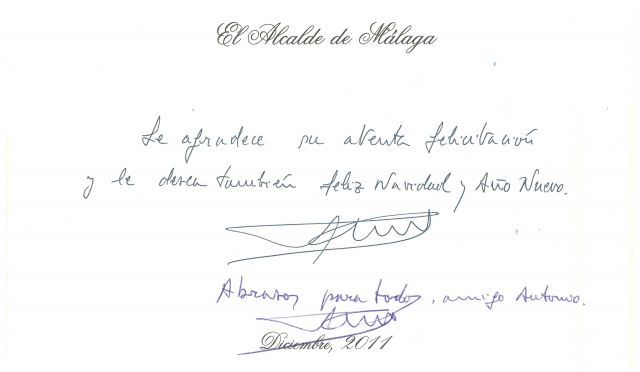 El Alcalde de Málaga
Le agradece su atenta felicitación
y le desea también feliz Navidad y Año Nuevo.
Abrazos para todos, amigo Antonio.
Diciembre, 2011